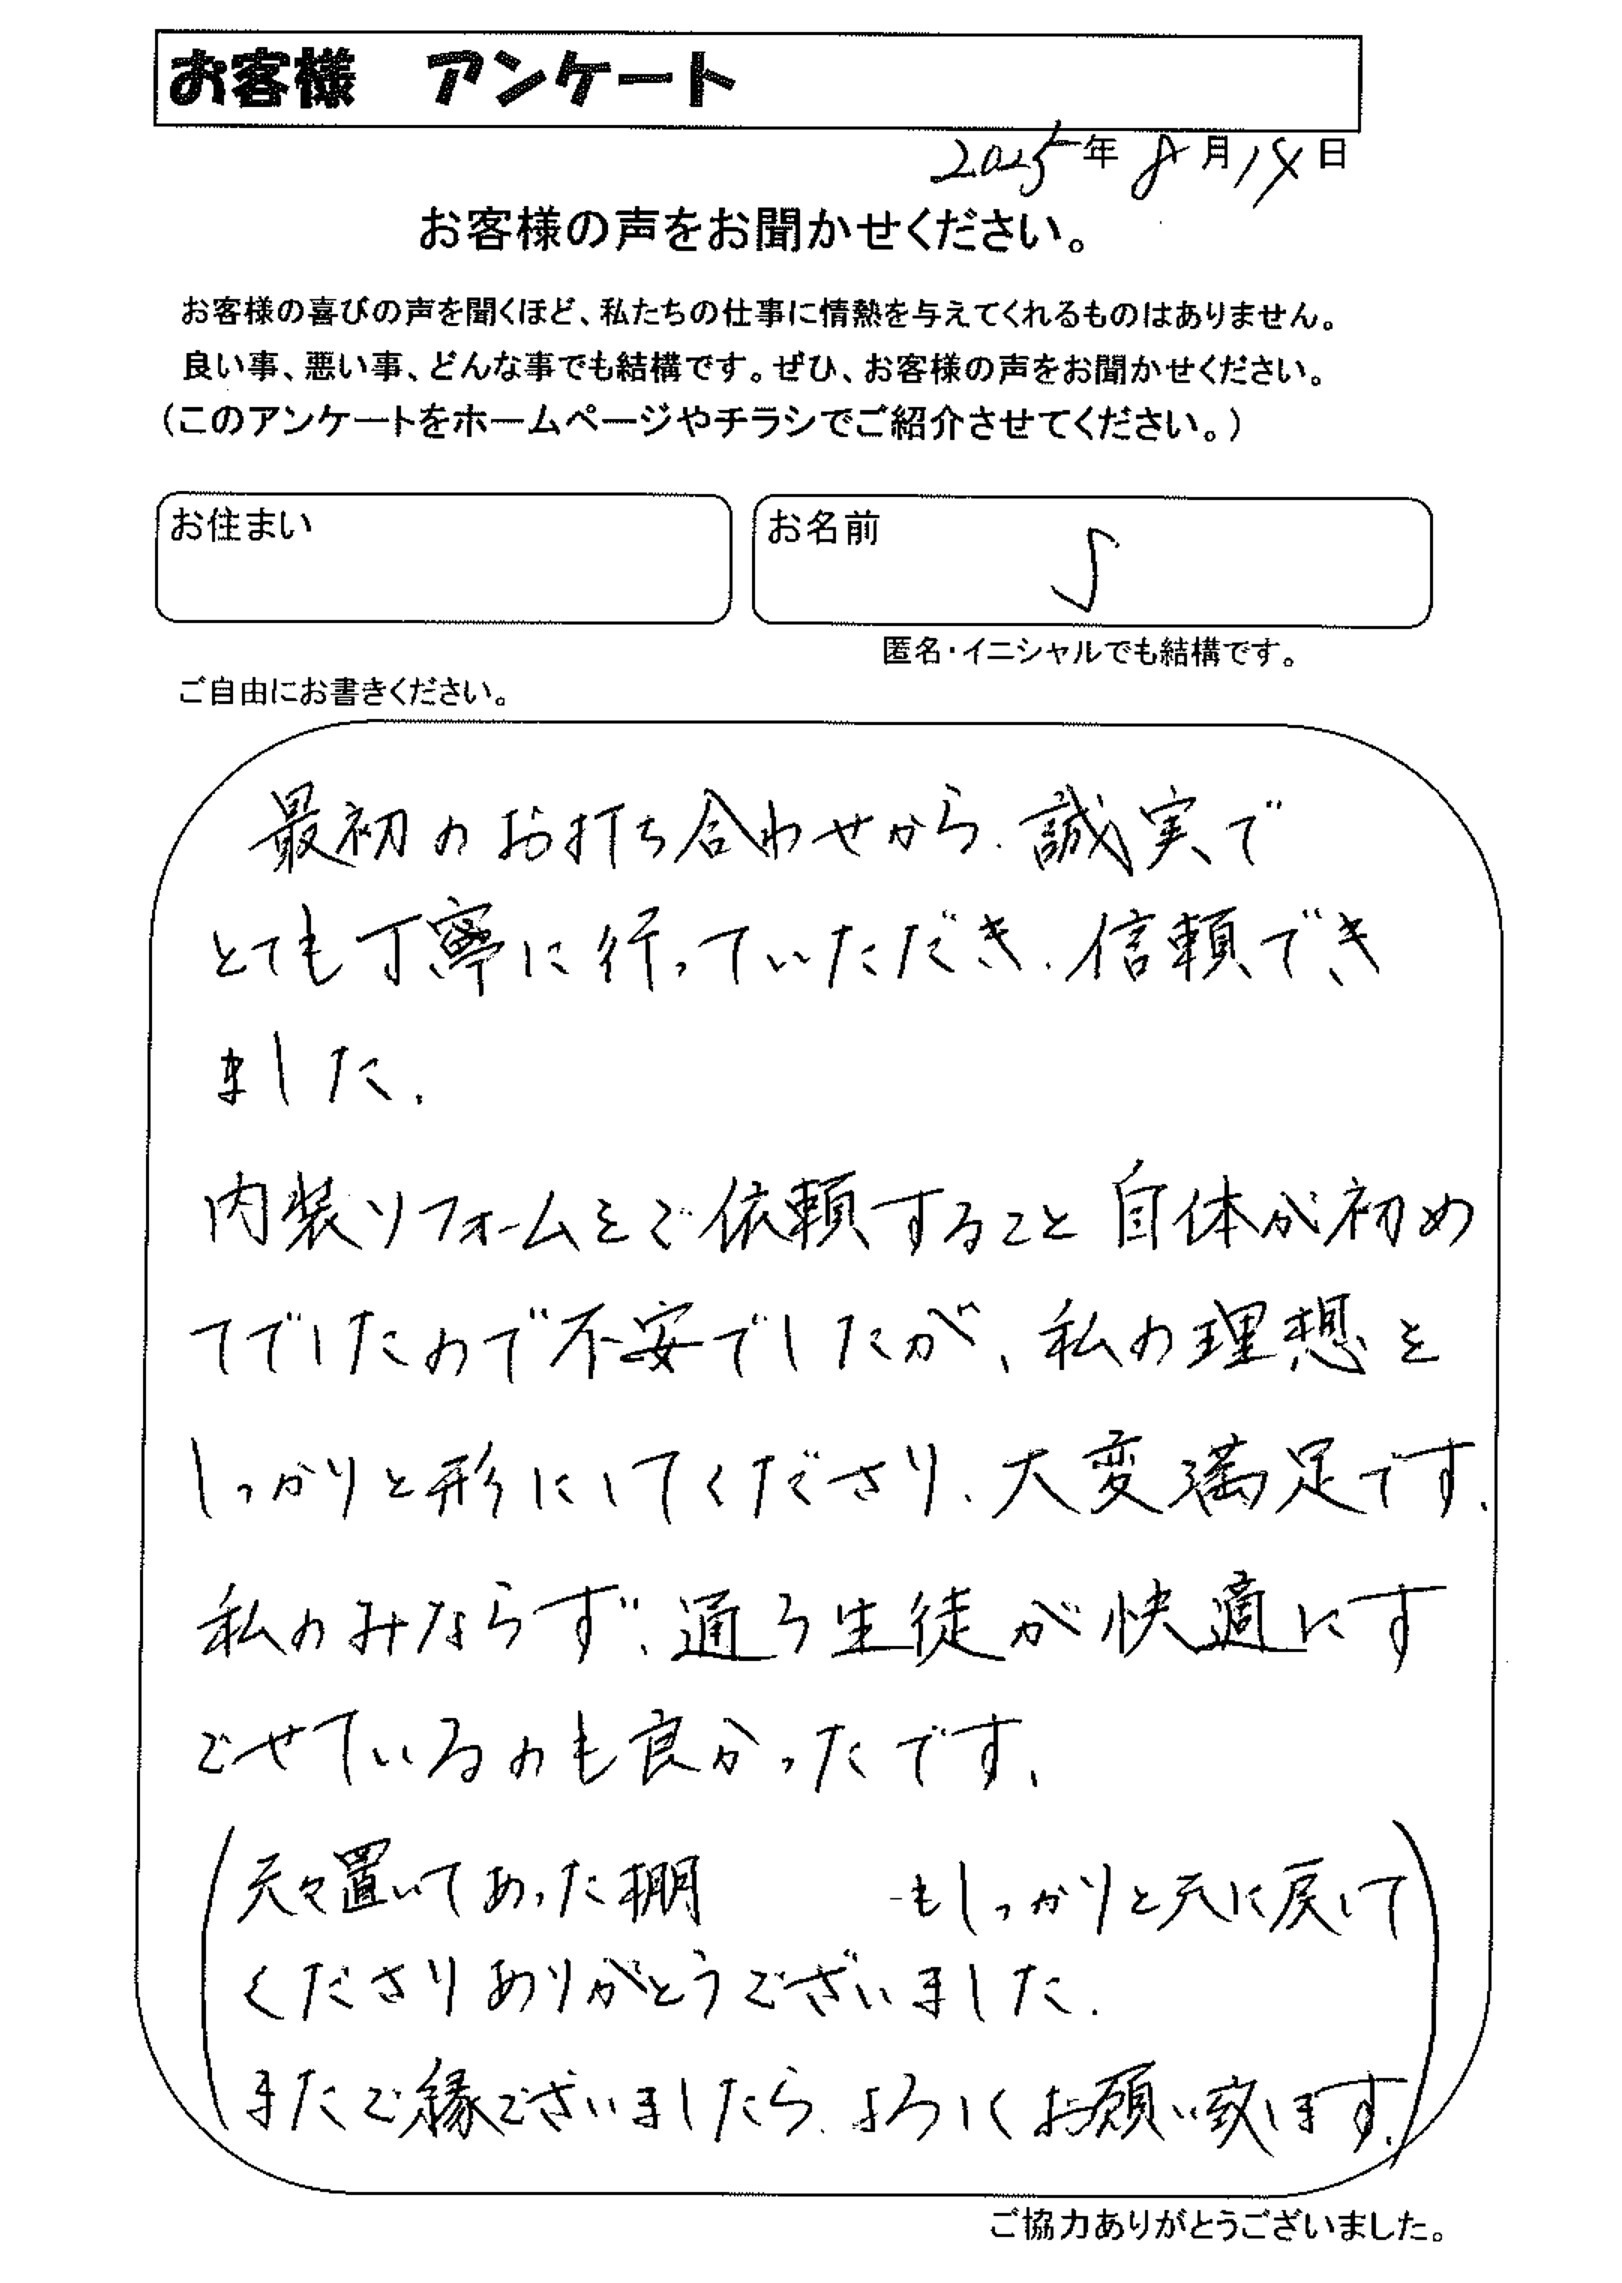 お客様 アンケート
2025年8月14日
お客様の声をお聞かせください。
お客様の喜びの声を聞くほど、私たちの仕事に情熱を与えてくれるものはありません。
良い事、悪い事、どんな事でも結構です。ぜひ、お客様の声をお聞かせください。
(このアンケートをホームページやチラシでご紹介させてください。)
お住まい
お名前 S
匿名・イニシャルでも結構です。
ご自由にお書きください。
最初のお打ち合わせから、誠実で
とても丁寧に行っていただき、信頼でき
ました。
内装リフォームをご依頼すること自体が初め
てでしたので不安でしたが、私の理想を
しっかりと形にしてくださり、大変満足です。
私のみならず、通う生徒が快適にす
ごせているのも良かったです。
(元々置いてあった棚 もしっかりと元に戻して
くださりありがとうございました。
またご縁ございましたら、よろしくお願い致します。)
ご協力ありがとうございました。